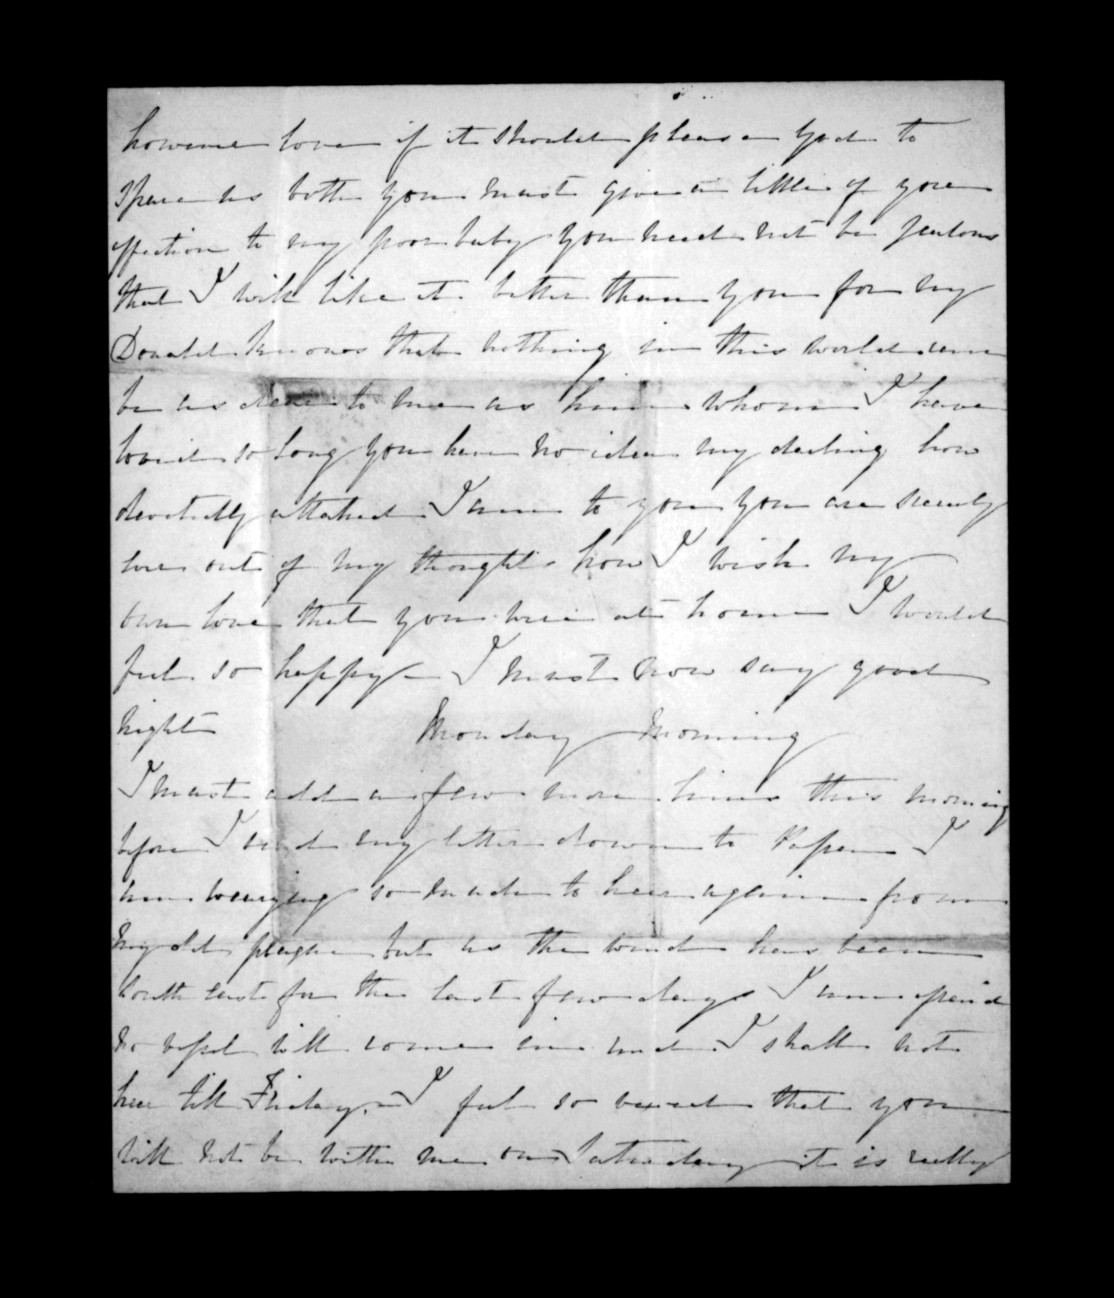 however love if it should please God to
spare us both you must give a little of your
affection to my poor baby you need not be jealous
that I will like it better than you for my
Donald knows that nothing in this world can
be as dear to me as him whom I have
loved so long you have no idea my darling how
devotedly attached I am to you you are scarcely
ever out of my thoughts how I wish my
own love that you were at home I would
feel so happy I must now say good
night Monday Morning
I must add a few more lines this morning
before I send my letter down to I
am wearying so much to hear again from
my old plague but as the wind has been
South east for the last few days I am afraid
no vessel will come in and I shall not
hear till Friday. I feel so vexed that you
will not be with me on Saturday it is really